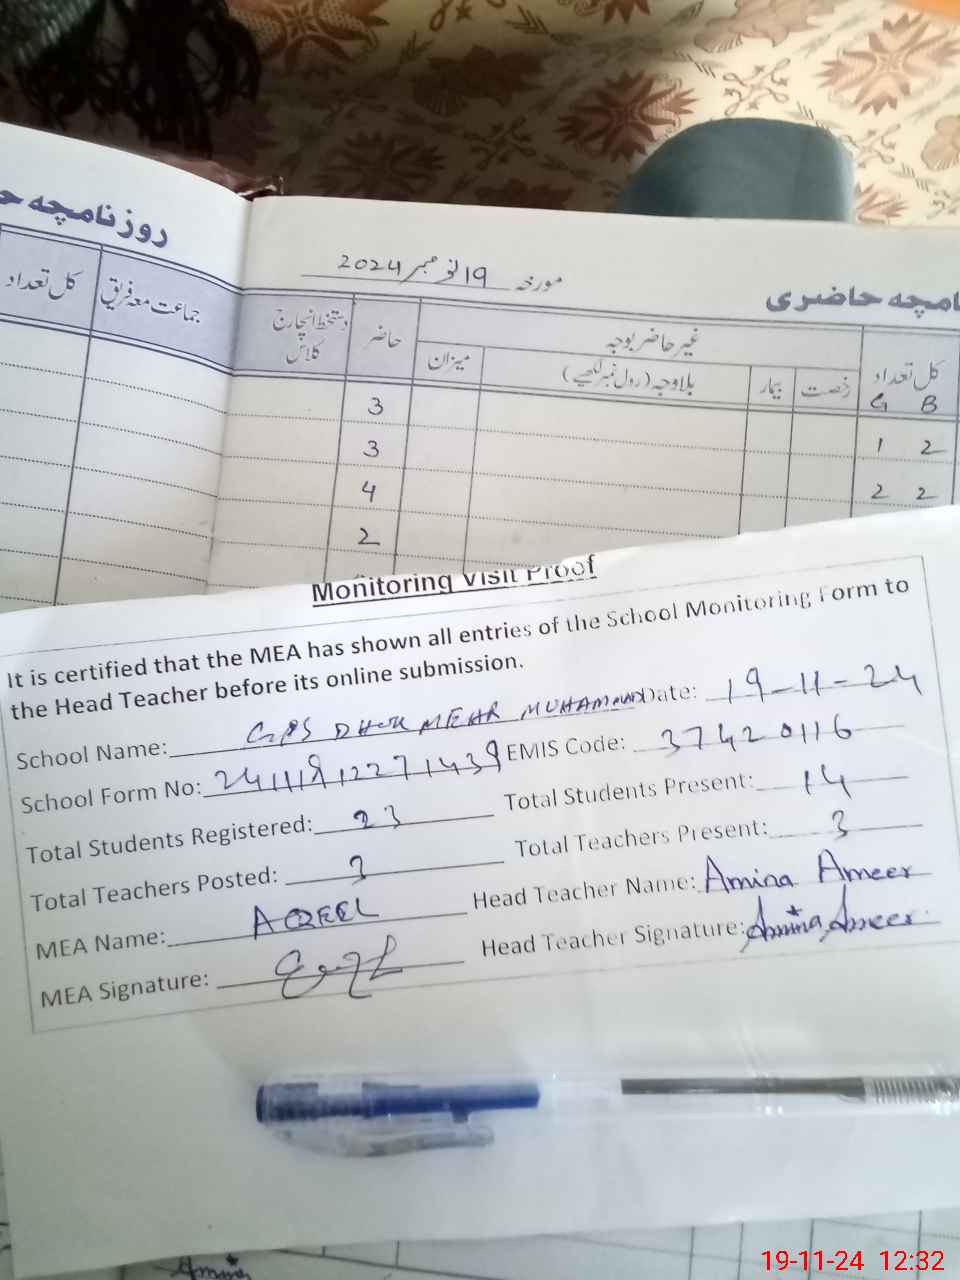 روزنامچہ
کل تعداد
جماعت معہ فریق
مورخہ 19 نومبر 2024
حاضری
کل تعداد
G B
رخصت
بیمار
غیر حاضر بوجہ
بلاوجہ (رول نمبر لکھیے)
میزان
حاضر
دستخط انچارج کلاس
3
1 2 3
2 2 4
2
Monitoring Visit Proof
It is certified that the MEA has shown all entries of the School Monitoring Form to
the Head Teacher before its online submission.
School Name: GPS DHOK MEHR MUHAMMAD Date: 19-11-24
School Form No: 24111912271439 EMIS Code: 37420116
Total Students Registered: 23 Total Students Present: 14
Total Teachers Posted: 3 Total Teachers Present: 3
MEA Name: AQEEL Head Teacher Name: Amina Ameer
MEA Signature: Head Teacher Signature: Amina Ameer
19-11-24 12:32